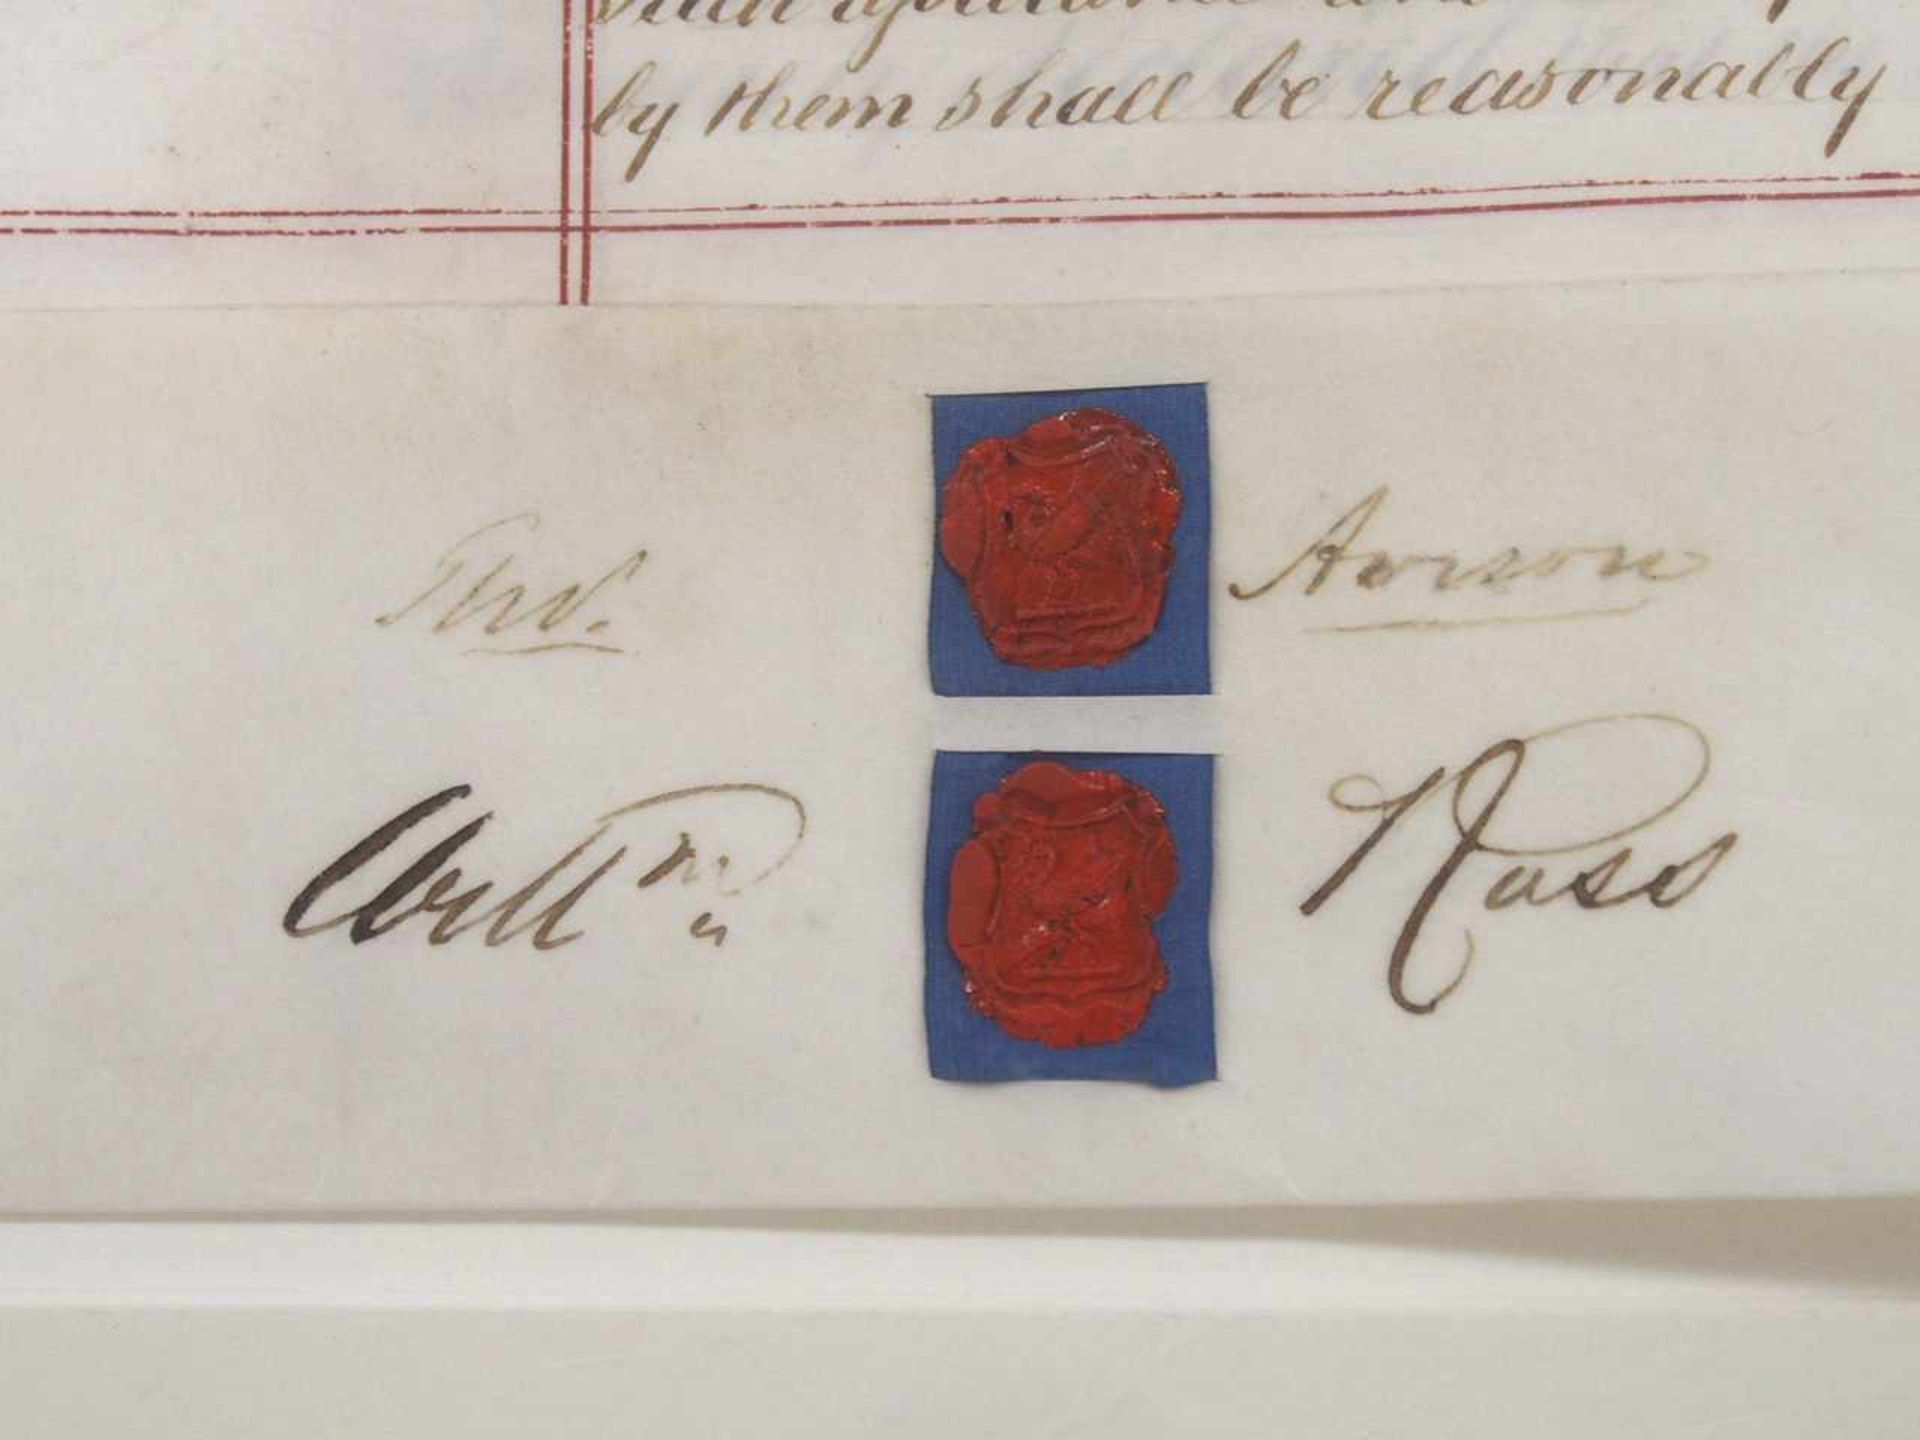 by them shall be reasonably
Thos. Avison
Will m Ross